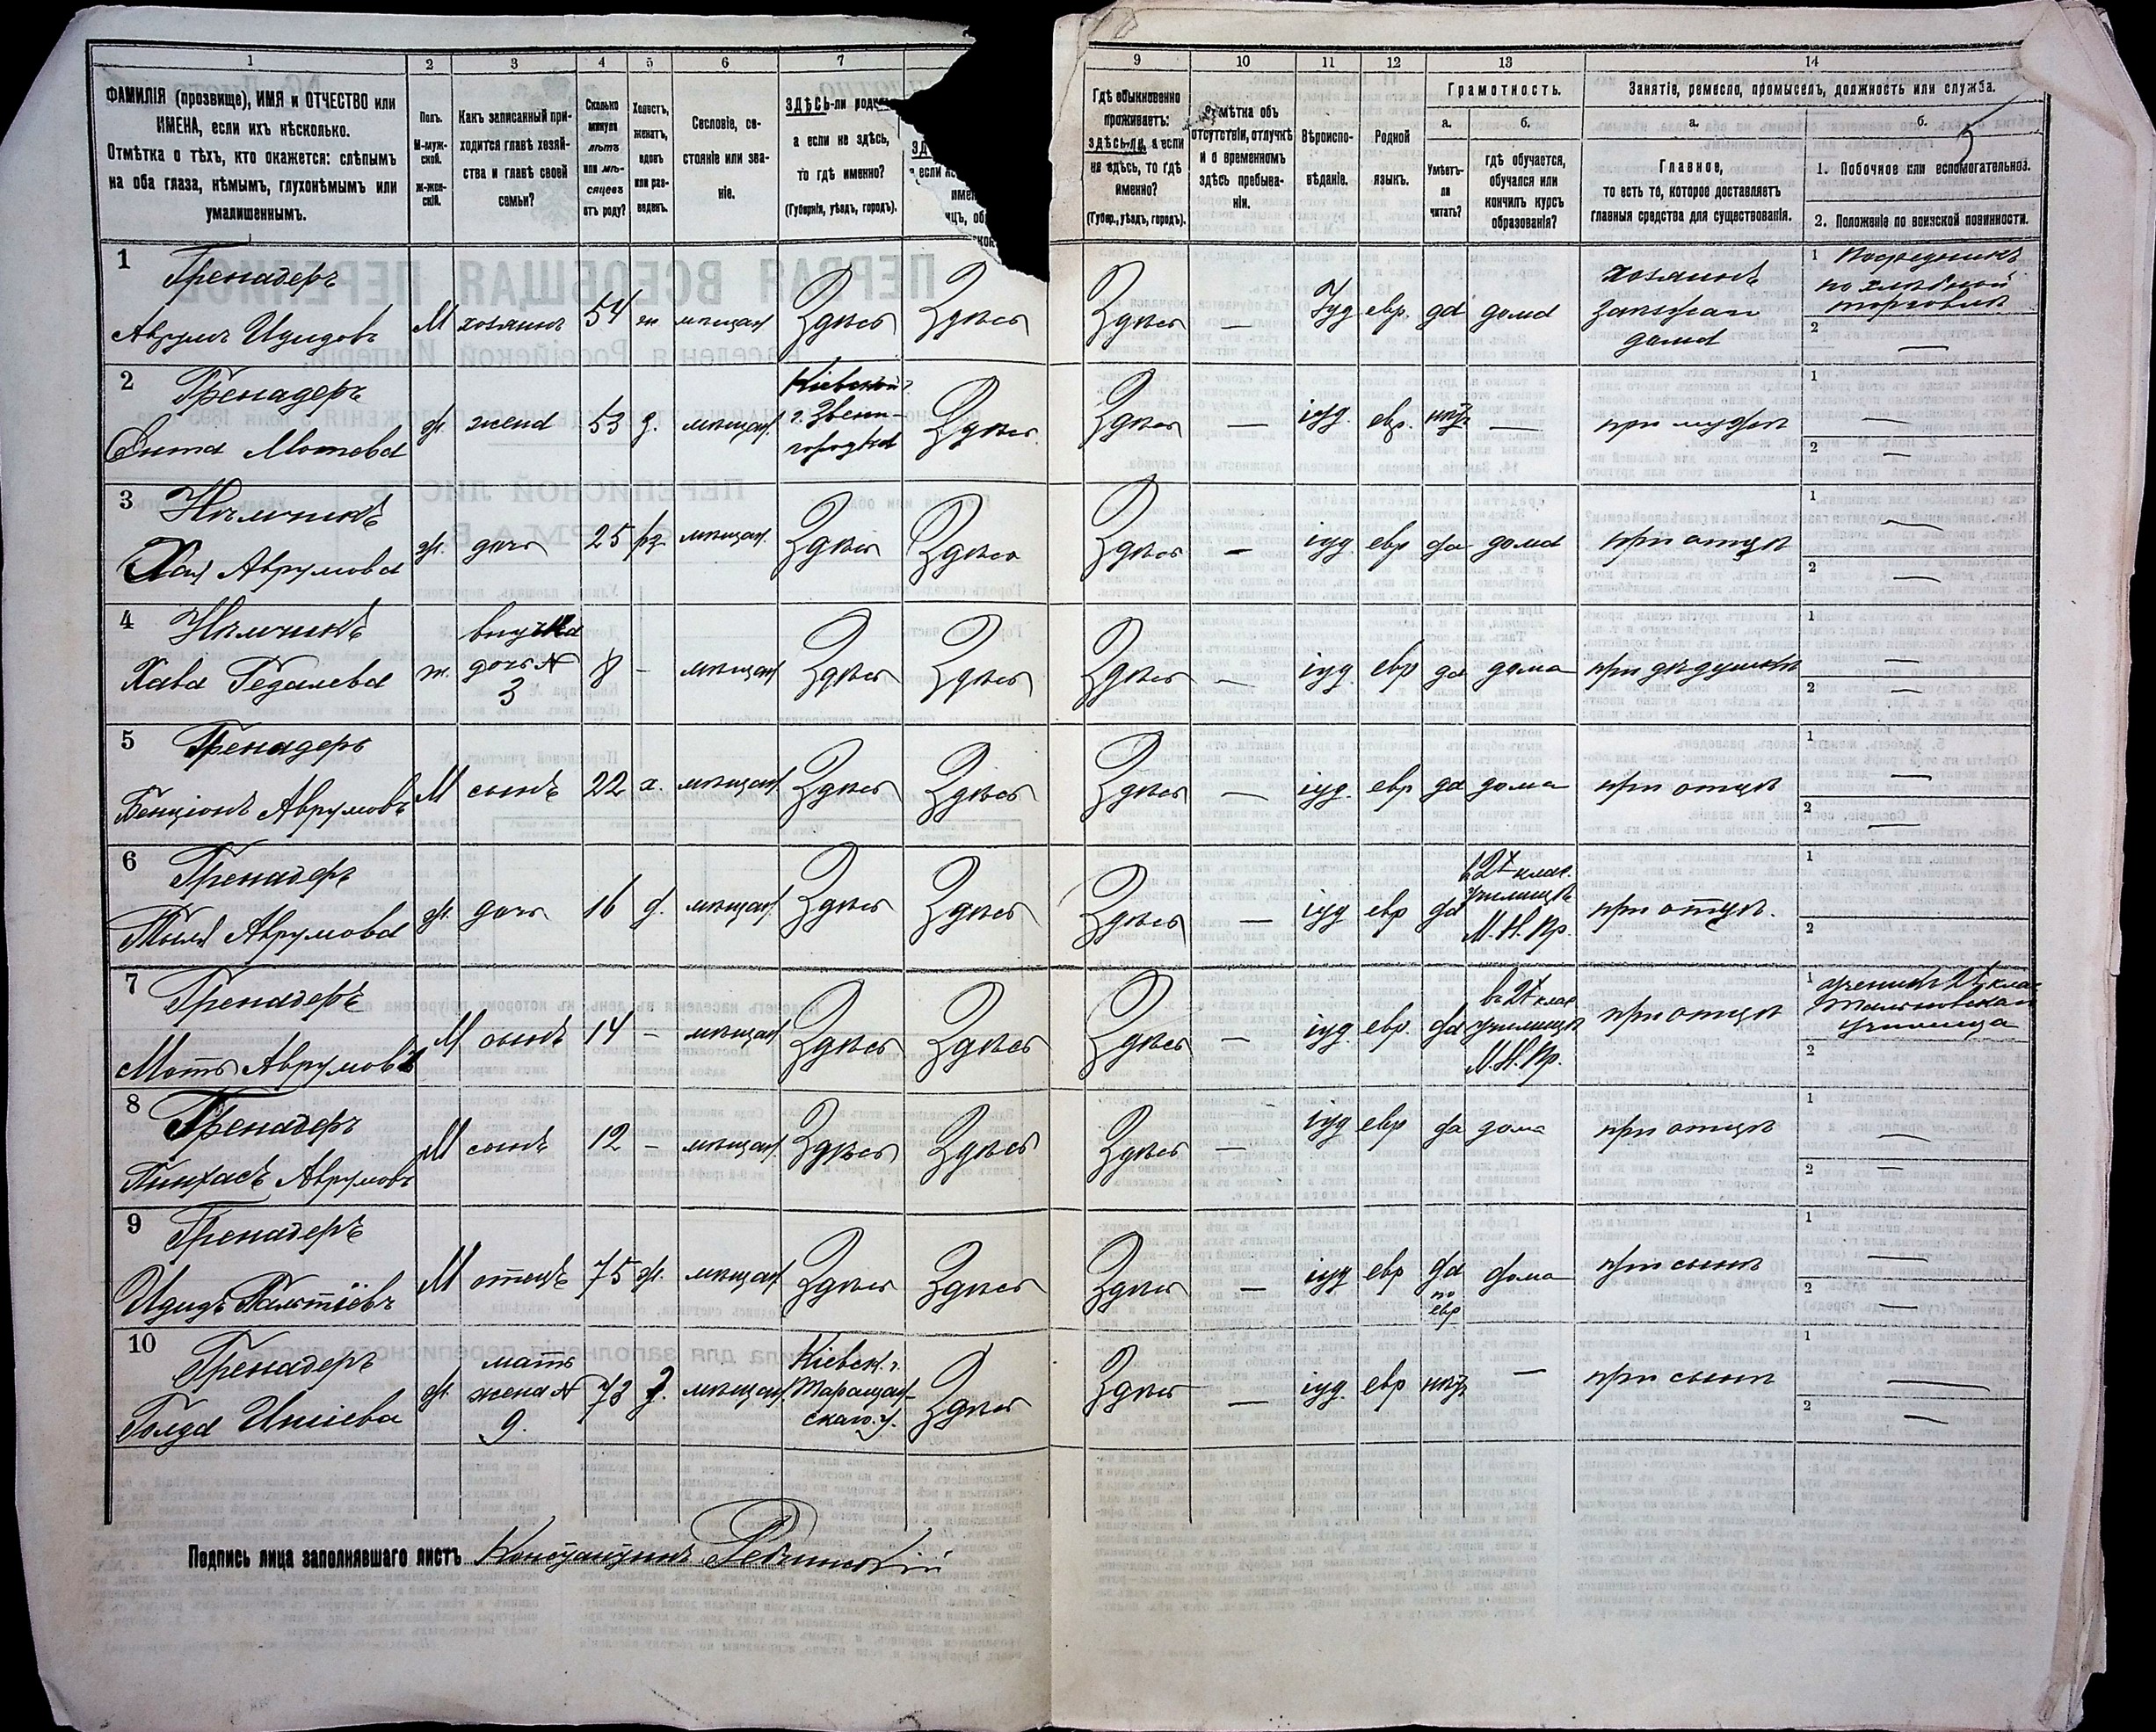 1 2 3 4 5 6 7 9 10 11 12 13 14
ФАМИЛІЯ (прозвище), ИМЯ и ОТЧЕСТВО или
ИМЕНА, если ихъ нѣсколько.
Отмѣтка о тѣхъ, кто окажется: слѣпымъ
на оба глаза, нѣмымъ, глухонѣмымъ или
умалишеннымъ.
Полъ.
М-муж-
ской.
ж-жен-
скій.
Какъ записанный при-
ходится главѣ хозяй-
ства и главѣ своей
семьи?
Сколько
минуло
лѣтъ
или мѣ-
сяцевъ
отъ роду?
Холостъ,
женатъ,
вдовъ
или раз-
веденъ.
Сословіе, со-
стояніе или зва-
ніе.
ЗДѢСЬ-ли
а если не здѣсь,
то гдѣ именно?
(Губернія, уѣздъ, городъ).
Гдѣ обыкновенно
проживаетъ:
ЗДѢСЬ-ли, а если
не здѣсь, то гдѣ
именно?
(Губер., уѣздъ, городъ).
Отмѣтка объ
отсутствіи, отлучкѣ
и о временномъ
здѣсь пребыва-
ніи.
Вѣроиспо-
вѣданіе.
Родной
языкъ.
Грамотность.
а.
Умѣетъ-
ли
читать?
б.
гдѣ обучается,
обучался или
кончилъ курсъ
образованія?
Занятіе, ремесло, промыселъ, должность или служба.
а.
Главное,
то есть то, которое доставляетъ
главныя средства для существованія.
б.
1. Побочное или вспомогательное.
2. Положеніе по воинской повинности.
1 Гренадеръ
Аврумъ Идудовъ М хозяинъ 54 ж мѣщан Здѣсь Здѣсь Здѣсь — Іуд евр. да дома
хозяинъ
дома
1 Посредникъ
по хлѣбной
торговлѣ
2 —
2 Гренадеръ
Мотева ж. жена 53 з. мѣщан.
Кіевской г.
Звени-
городка
Здѣсь Здѣсь — іуд. евр. нѣтъ — при мужѣ
1 —
2 —
3 Нѣмчикъ
Хая Аврумова ж. дочь 25 рз мѣщан. Здѣсь Здѣсь Здѣсь — іуд евр да дома при отцѣ
1 —
2 —
4 Нѣмчикъ
Хава Гедалева ж.
внучка
дочь №
3
8 — мѣщан Здѣсь Здѣсь Здѣсь — іуд. евр да дома при дѣдушкѣ
1 —
2 —
5 Гренадеръ
Бенціонъ Аврумовъ М сынъ 22 х. мѣщан Здѣсь Здѣсь Здѣсь — іуд. евр да дома при отцѣ
1 —
2 —
6 Гренадеръ
Аврумова ж. дочь 16 д. мѣщан. Здѣсь Здѣсь Здѣсь — іуд евр да
в 2х клас.
училищѣ
М. Н. Пр.
при отцѣ.
1
2
7 Гренадеръ
Моть Аврумовъ М сынъ 14 — мѣщан Здѣсь Здѣсь Здѣсь — іуд. евр. да
въ 2х клас
училищѣ
М. Н. Пр.
при отцѣ
1 ученикъ 2х клас
Тальновскаго
училища
2
8 Гренадеръ
Пинхасъ Аврумовъ М сынъ 12 — мѣщан. Здѣсь Здѣсь Здѣсь — іуд евр да дома при отцѣ
1 —
2 —
9 Гренадеръ
Идудъ М отецъ 75 ж. мѣщан Здѣсь Здѣсь Здѣсь — іуд евр да
по
евр
дома при сынѣ
1 —
2 —
10 Гренадеръ
Голда ж.
мать
жена №
9.
73 з. мѣщан
Кіевск. г.
Таращан-
скаго у.
Здѣсь Здѣсь — іуд. евр нѣтъ — при сынѣ
1 —
2 —
Подпись лица заполнявшаго листъ Константинъ